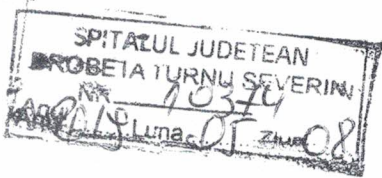 SPITALUL JUDETEAN
DROBETA TURNU SEVERIN
NR. 10374
2019 Luna 05 Ziua 08